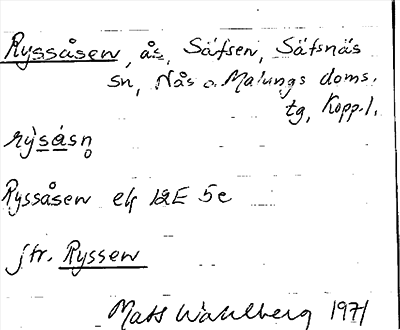 Ryssåsen, ås, Säfsen, Säfsnäs
sn, Nås o. Malungs doms.
tg, Kopp. l.
rỳsåsn̥
Ryssåsen ek 12E 5e
jfr. Ryssen
Mats Wahlberg 1971